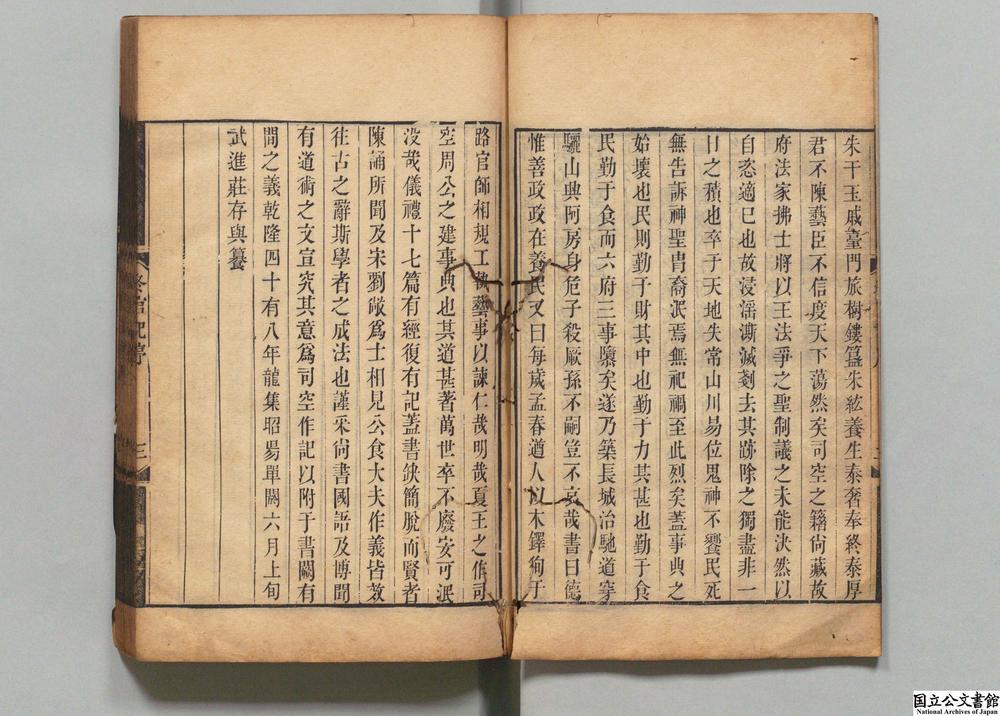 朱干玉戚臺門旅樹鏤簋朱紘養生泰奢奉終泰厚
君不陳藝臣不信度天下蕩然矣司空之籍尙藏故
府法家拂士將以王法爭之聖制議之未能決然以
自恣適已也故浸滛澌滅剗去其跡除之獨盡非一
日之積也卒于天地失常山川易位鬼神不饗民死
無告訴神聖胄裔泯焉無祀禍至此烈矣蓋事典之
始壞也民則勤于財其中也勤于力其甚也勤于食
民勤于食而六府三事隳矣遂乃築長城治馳道穿
驪山興阿房身危子殺厥孫不嗣豈不哀哉書曰德
惟善政政在養民又曰每歲孟春遒人以木鐸徇于
路官師相規工執藝事以諫仁哉明哉夏王之作司
空周公之建事典也其道甚著萬世卒不廢安可泯
没哉儀禮十七篇有經復有記蓋書缺簡脫而賢者
陳誦所聞及宋劉敞爲士相見公食大夫作義皆效
往古之辭斯學者之成法也謹采尙書國語及博聞
有道術之文宣究其意爲司空作記以附于書闕有
間之義乾隆四十有八年龍集昭昜單閼六月上旬
武進莊存與纂
冬官記序
三
国立公文書館
National Archives of Japan